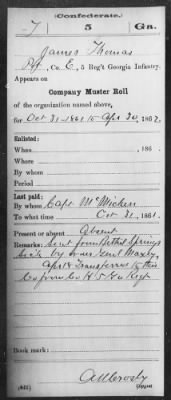 (Confederate.)
T 5 Ga.
James Thomas
Pvt, Co. E, 5 Reg't Georgia Infantry.
Appears on
Company Muster Roll
of the organization named above,
for Oct 31, 1861 to Apr 30, 1862.
Enlisted:
When , 186 .
Where
By whom
Period
Last paid:
By whom Capt McMicken
To what time Oct 31, 1861.
Present or absent Absent
Remarks: Sent from Bethel Springs
sick by order Genl Maxey,
Apl 14 Transferred to this
Co from Co H 5 Ga Regt
Book mark:
(642) Copyist.